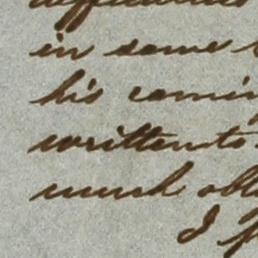 in some
his comin
written to
much obl
I